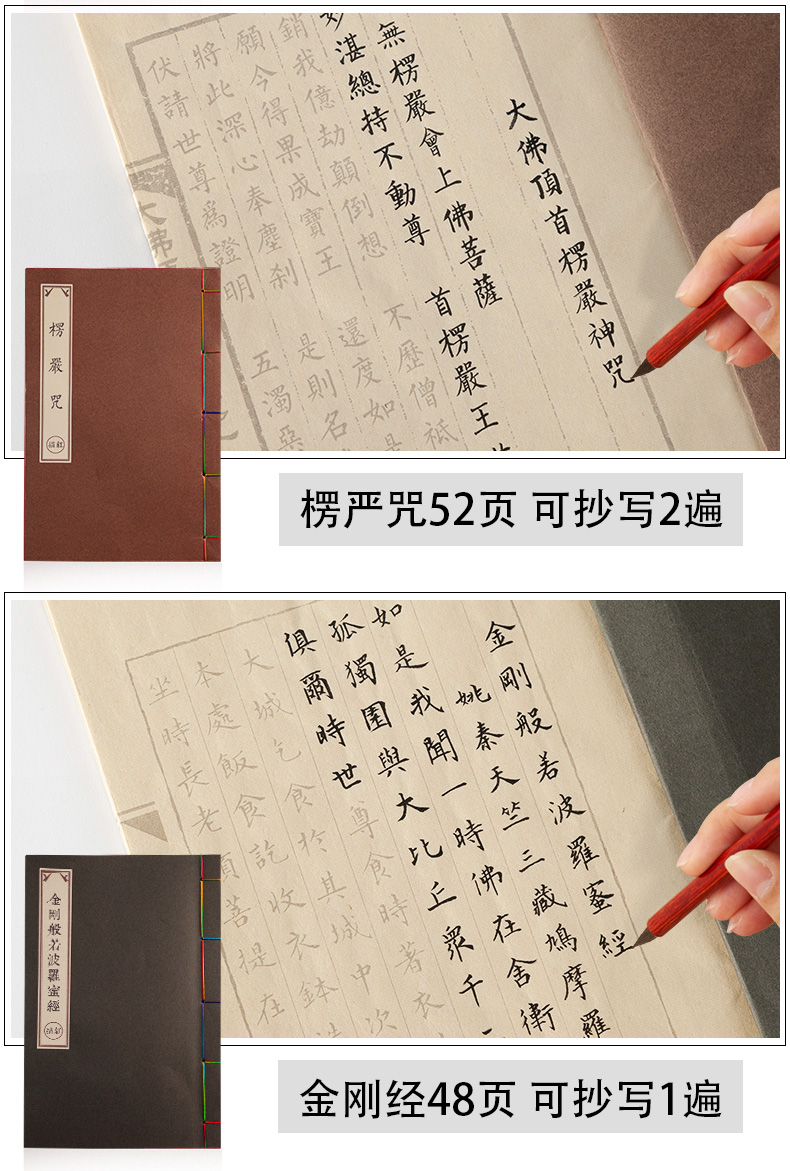 大佛頂首楞嚴神咒
無楞嚴會上佛菩薩
妙湛總持不動尊 首楞嚴王
銷我億劫顛倒想 不歷僧祇
願今得果成寶王 還度如是
將此深心奉塵刹 是則名
伏請世尊為證明 五濁惡
大佛頂
楞嚴咒
楞严咒52页 可抄写2遍
金剛般若波羅蜜經
姚秦天竺三藏鳩摩羅
如是我聞一時佛在舍衛
孤獨園與大比丘眾千
俱爾時世尊食時著衣
大城乞食於其城中次
本處飯食訖收衣鉢
坐時長老須菩提在
金剛般若波羅蜜經
金刚经48页 可抄写1遍